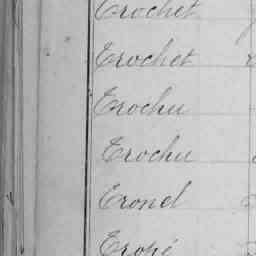 Crochet
Crochet
Crochu
Crochu
Cronel
Cropé